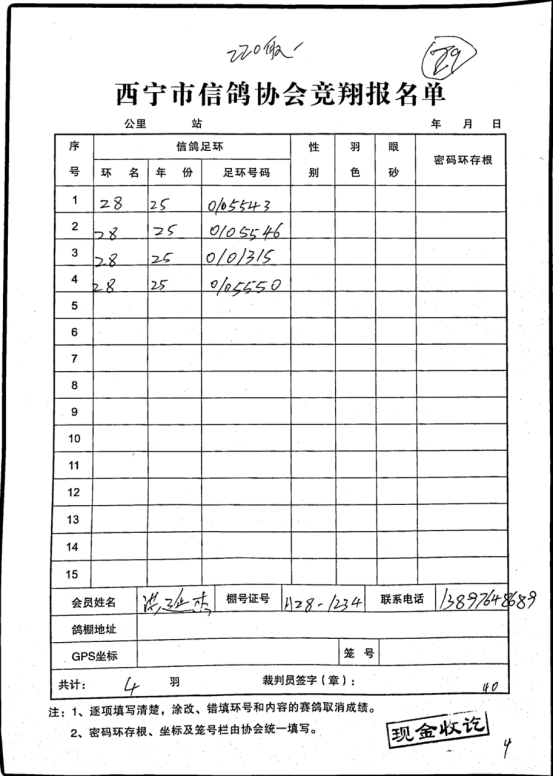 220
29
西宁市信鸽协会竞翔报名单
公里 站 年 月 日
序号 信鸽足环 性别 羽色 眼砂 密码环存根
环名 年份 足环号码
1 28 25 0105543
2 28 25 0105546
3 28 25 0101315
4 28 25 0105550
5
6
7
8
9
10
11
12
13
14
15
会员姓名 棚号证号 1128-1234 联系电话 13897648689
鸽棚地址
GPS坐标 笼号
共计: 4 羽 裁判员签字(章): 40
注:1、逐项填写清楚,涂改、错填环号和内容的赛鸽取消成绩。
2、密码环存根、坐标及笼号栏由协会统一填写。
现金收讫
4